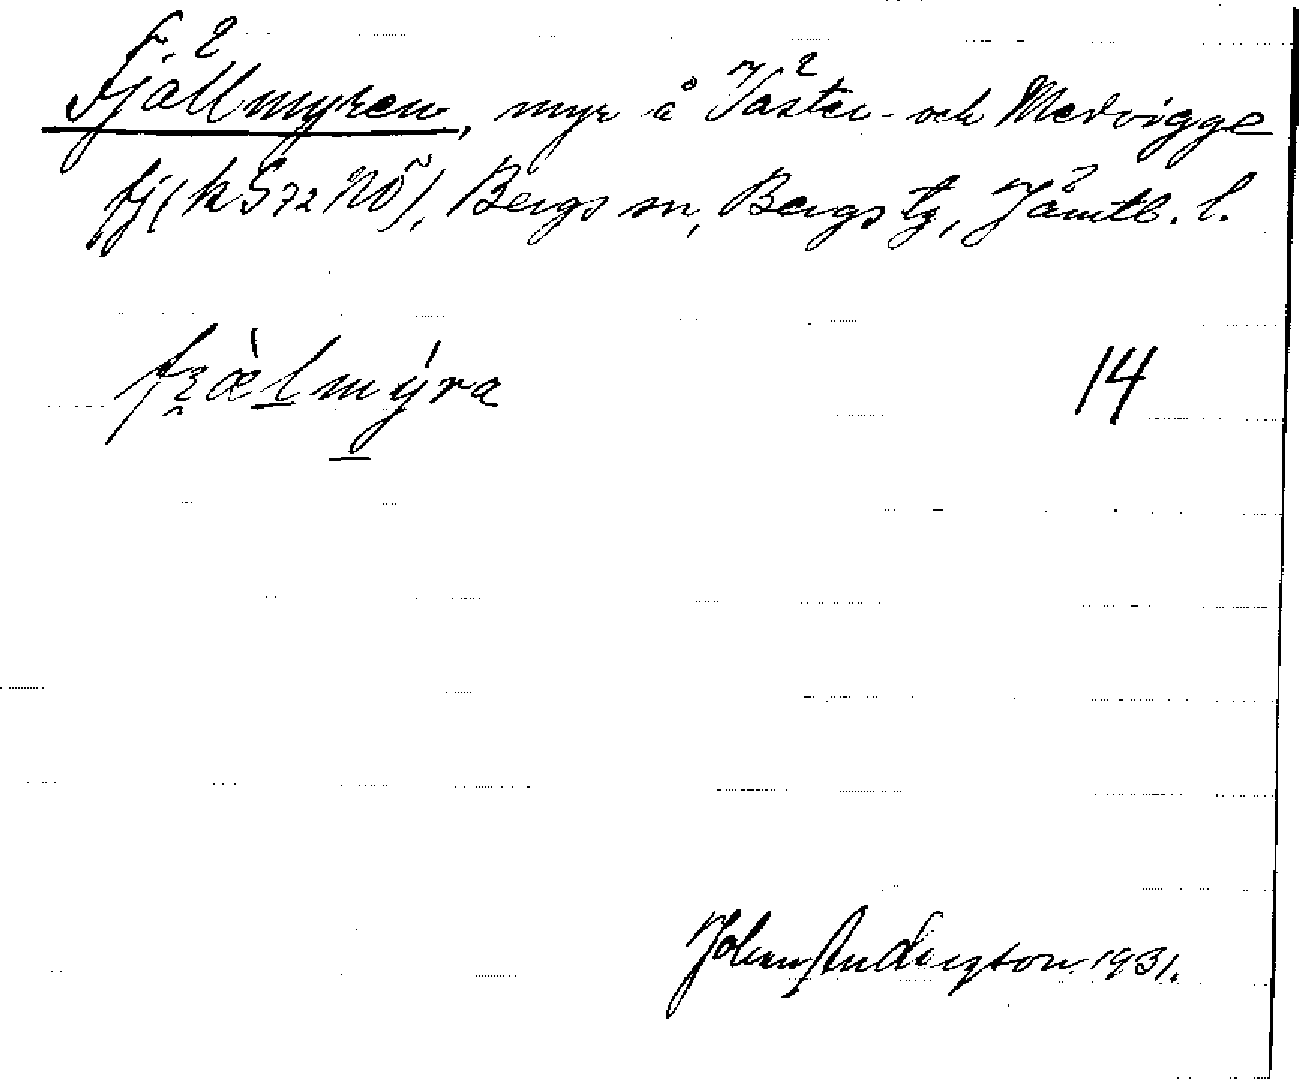 Fjällmyren, myr å Västen- och Medvigge
fj (k S 72 NÖ), Bergs sn, Bergs tg, Jämtl. l.
fᴣæ̀lmýra
14
Johan Anderston 1931.